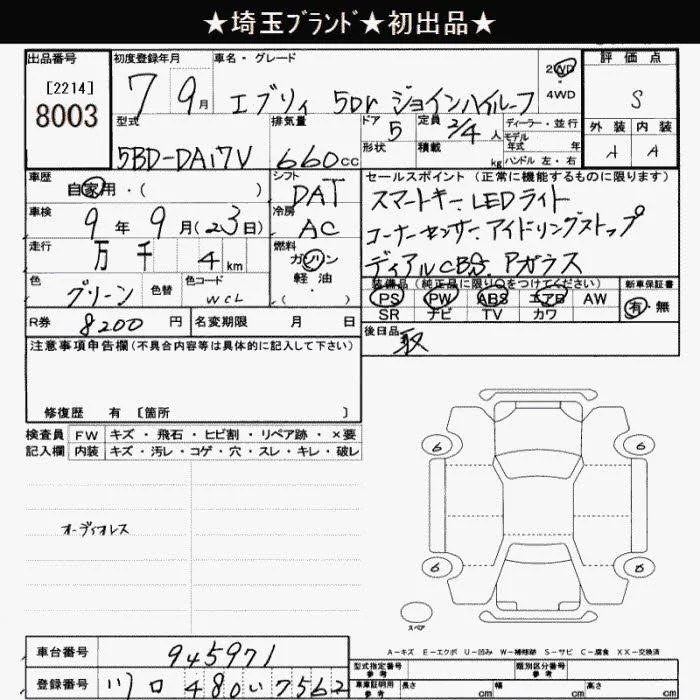 ★埼玉ブランド★初出品★
出品番号 初度登録年月 車名・グレード 評価点
[2214] 8003
7 9月 エブリィ 5Dr ジョインハイルーフ 2WD 4WD S
型式 排気量 ドア 定員 ディーラー・並行 外装 内装
5BD-DA17V 660cc 5 2/4人 モデル年式 年 A A
形状 積載 kg ハンドル 左・右
車歴 シフト セールスポイント (正常に機能するものに限ります)
自家用・( ) DAT スマートキー. LEDライト
車検 冷房
9年9月(23日) AC コーナーセンサー. アイドリングストップ
走行 燃料
万 千 4km ガソリン ディアルCBS. Pガラス
色 色替 色コード 軽油
グリーン WCL ( )
装備品 (純正品に限り○をつけてください) 新車保証書
PS PW ABS エアB AW 有・無
SR ナビ TV カワ
R券 8200円 名変期限 月 日 後日品 取
注意事項申告欄(不具合内容等は具体的に記入して下さい)
修復歴 有 [箇所 ]
検査員 FW キズ・飛石・ヒビ割・リペア跡・×要
記入欄 内装 キズ・汚レ・コゲ・穴・スレ・キレ・破レ
オーディオレス
6 6
6 6
スペア
A-キズ E-エクボ U-凹み W-補修跡 S-サビ C-腐食 XX-交換済
車台番号 945971 型式指定番号 参考 類別区分番号 参考
登録番号 川口 480 い 7562 車庫証明用 参考 長さ cm 幅 cm 高さ cm